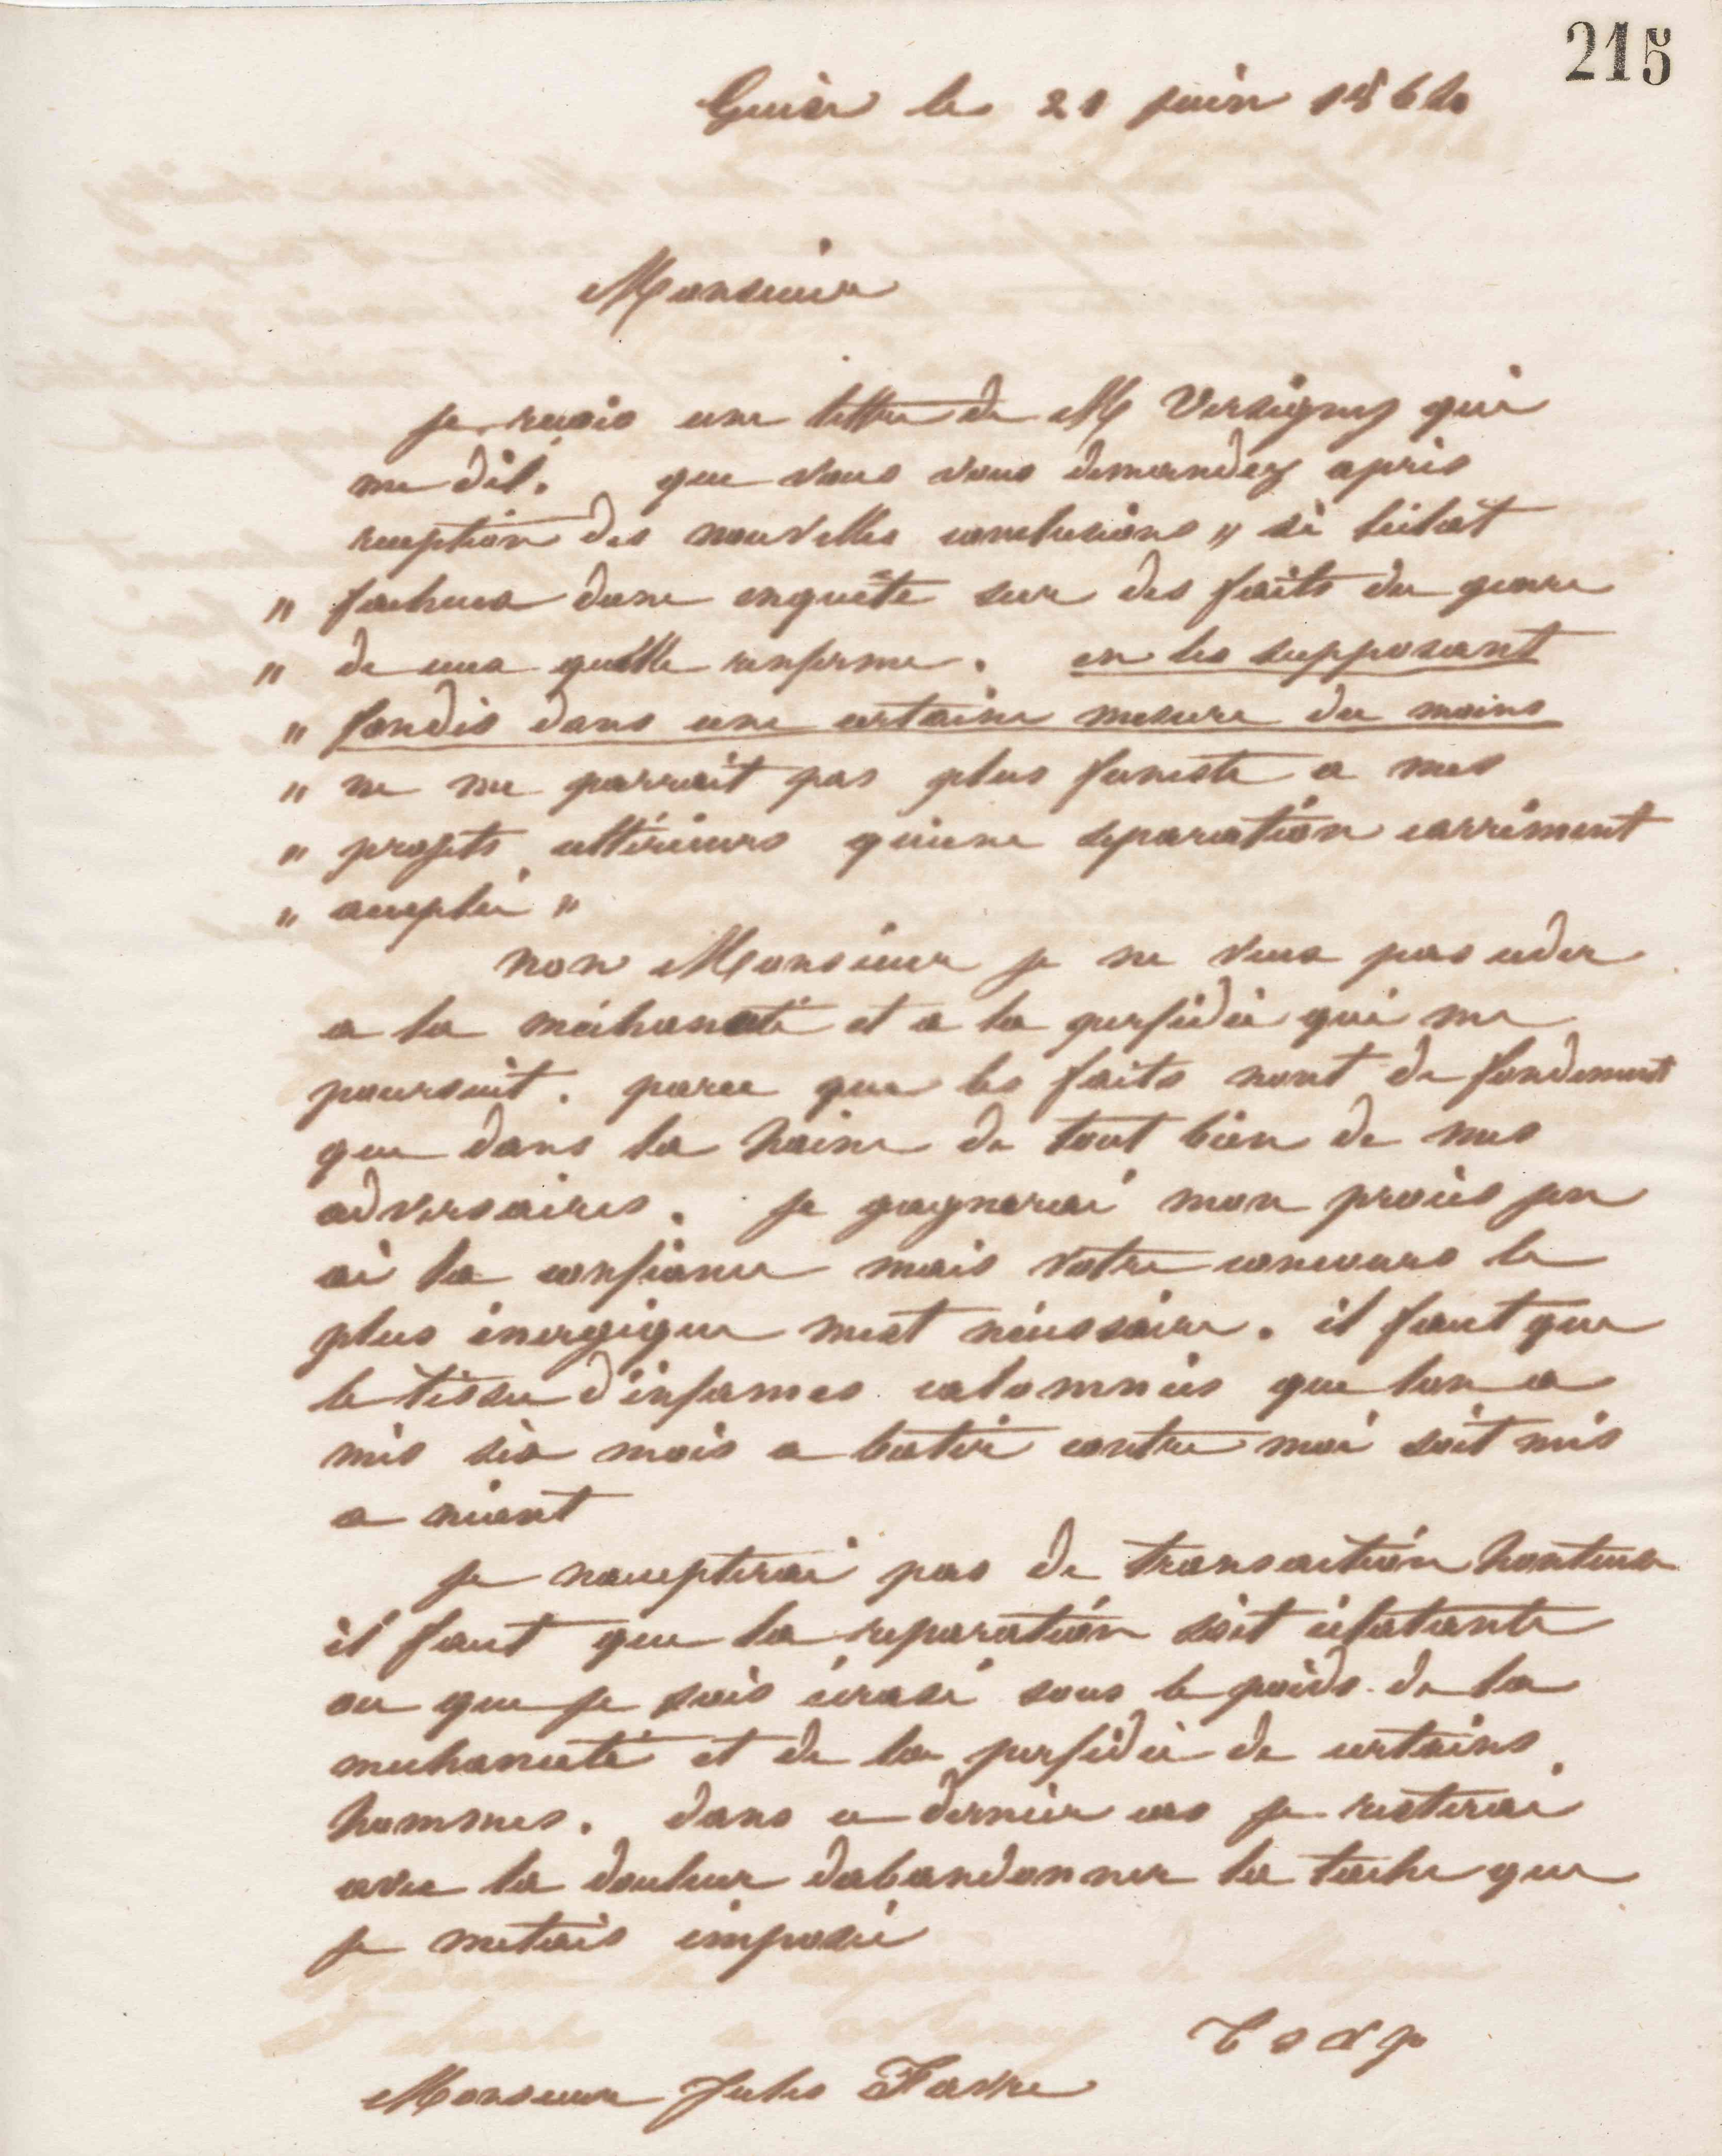 215
Guise le 21 juin 1864
Monsieur
je recois une lettre de M Versigny qui
me dit. que vous vous demandez apres
reception des nouvelles conclusions " si l'éclat
" facheux dune enquête sur des faits du genre
" de ceux quelle renferme. en les supposant
" fondés dans une certaine mesure du moins
" ne me parrait pas plus funeste a mes
" projets ultérieurs quune separation carrément
" acceptée "
non Monsieur je ne veux pas ceder
a la méchanceté et a la perfidie qui me
poursuit. parce que les faits nont de fondement
que dans la haine de tout bien de mes
adversaires. je gagnerai mon procès jen
ai la confiance mais votre concours le
plus énergique mest nécessaire. il faut que
le tissu d'infames calomnies que lon a
mis six mois a batir contre moi soit mis
a néant
je naccepterai pas de transaction honteuse
il faut que la reparation soit éclatante
ou que je sois écrasé sous le poids de la
mechanceté et de la perfidie de certains
hommes. dans ce dernier cas je resterai
avec la douleur dabandonner la tache que
je metais imposée
Monsieur Jules Favre